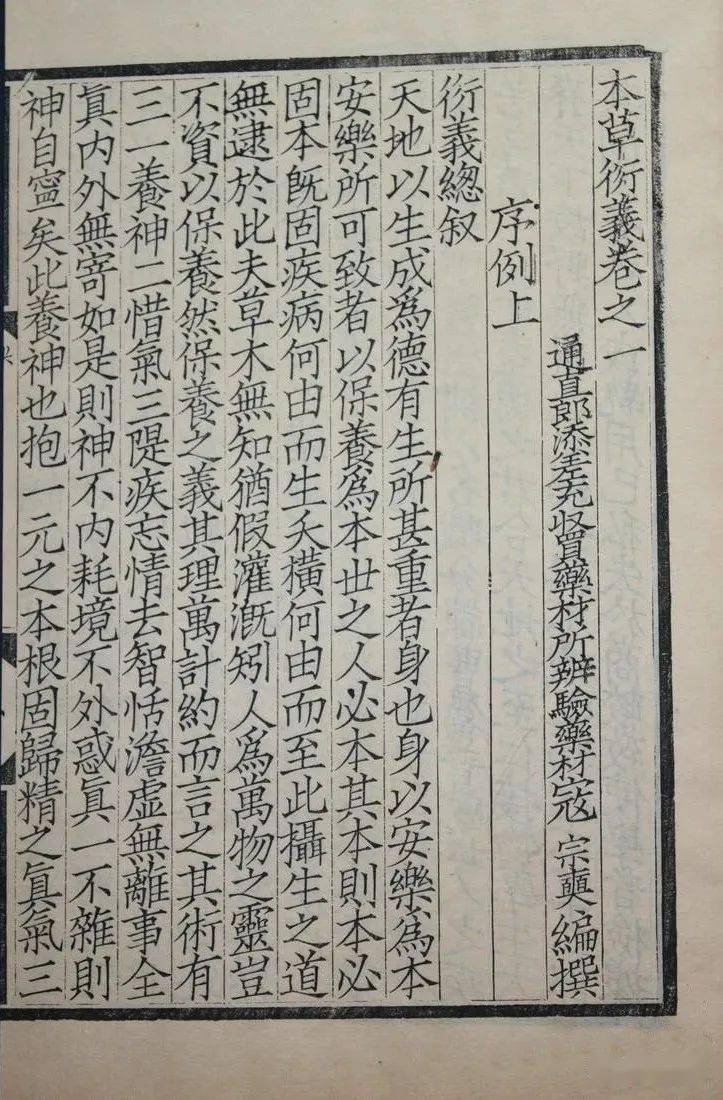 本草衍義卷之一
通直郎添差充收買藥材所辨驗藥材寇 宗奭 編撰
序例上
衍義總叙
天地以生成爲德有生所甚重者身也身以安樂爲本
安樂所可致者以保養爲本世之人必本其本則本必
固本既固疾病何由而生夭橫何由而至此攝生之道
無逮於此夫草木無知猶假灌漑矧人爲萬物之靈豈
不資以保養然保養之義其理萬計約而言之其術有
三一養神二惜氣三隄疾忘情去智恬澹虛無離事全
眞內外無寄如是則神不內耗境不外惑眞一不雜則
神自寧矣此養神也抱一元之本根固歸精之眞氣三